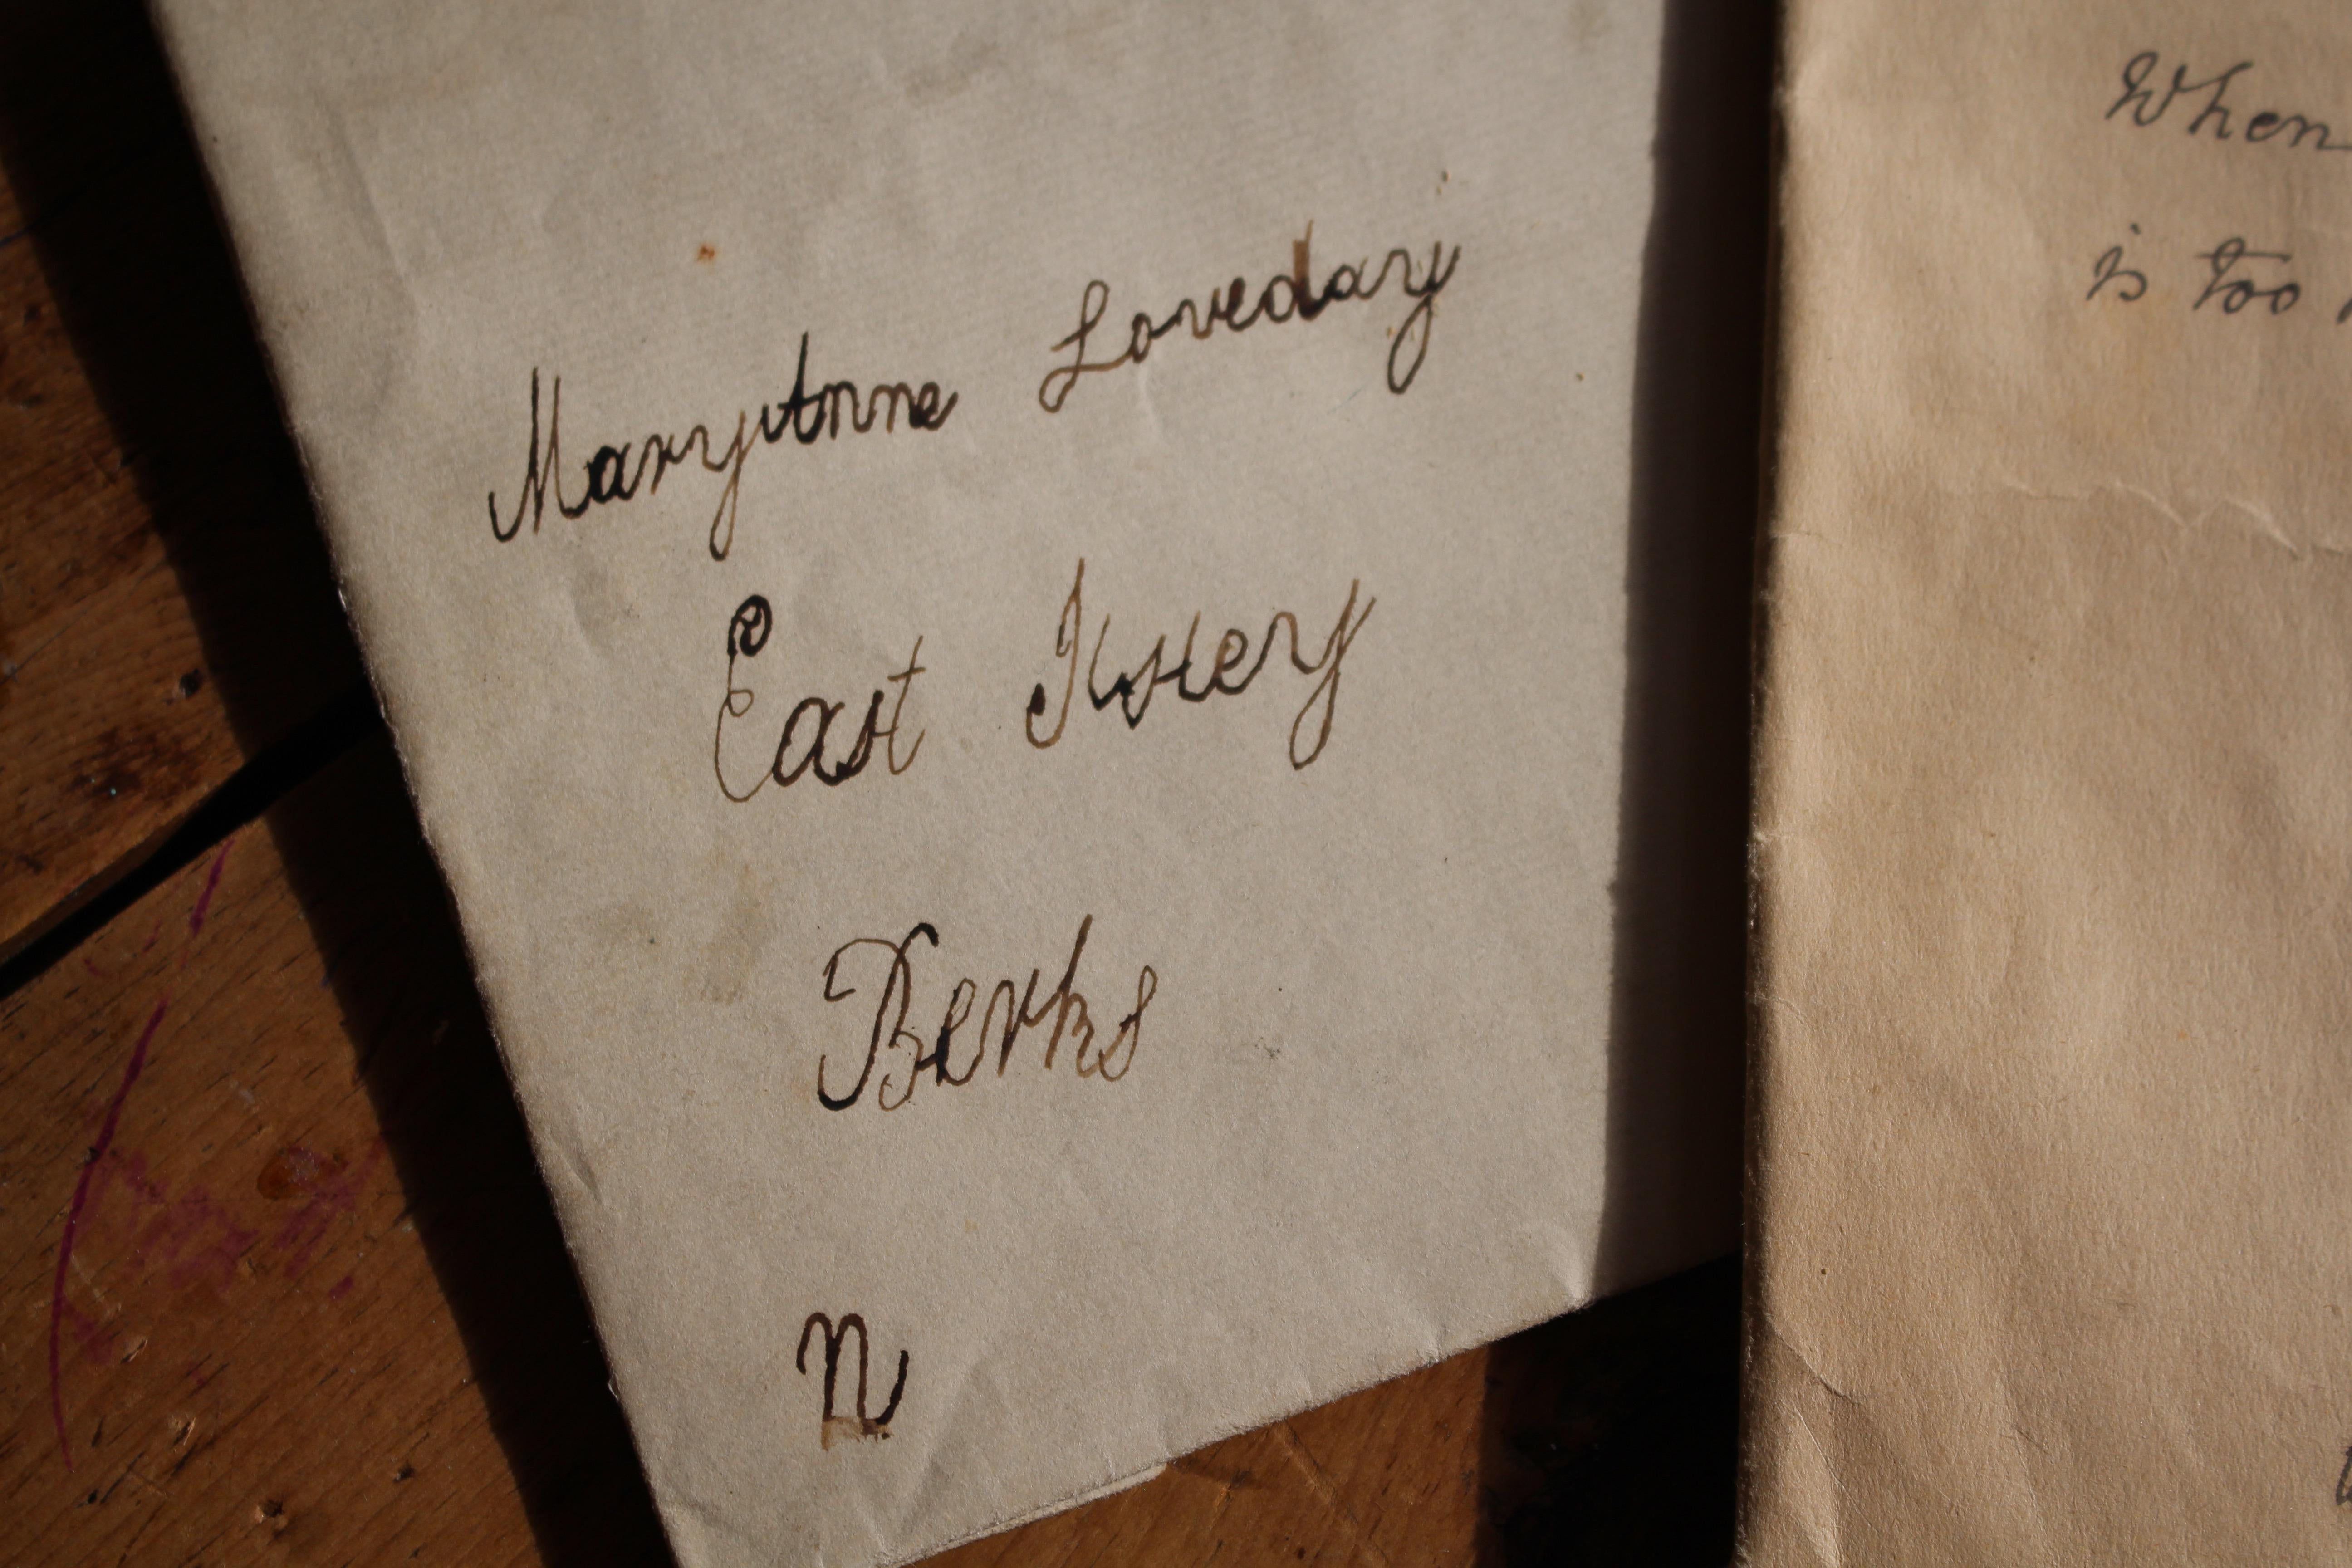 MaryAnne Loveday
East Ilsley
Berks
N
When
is too